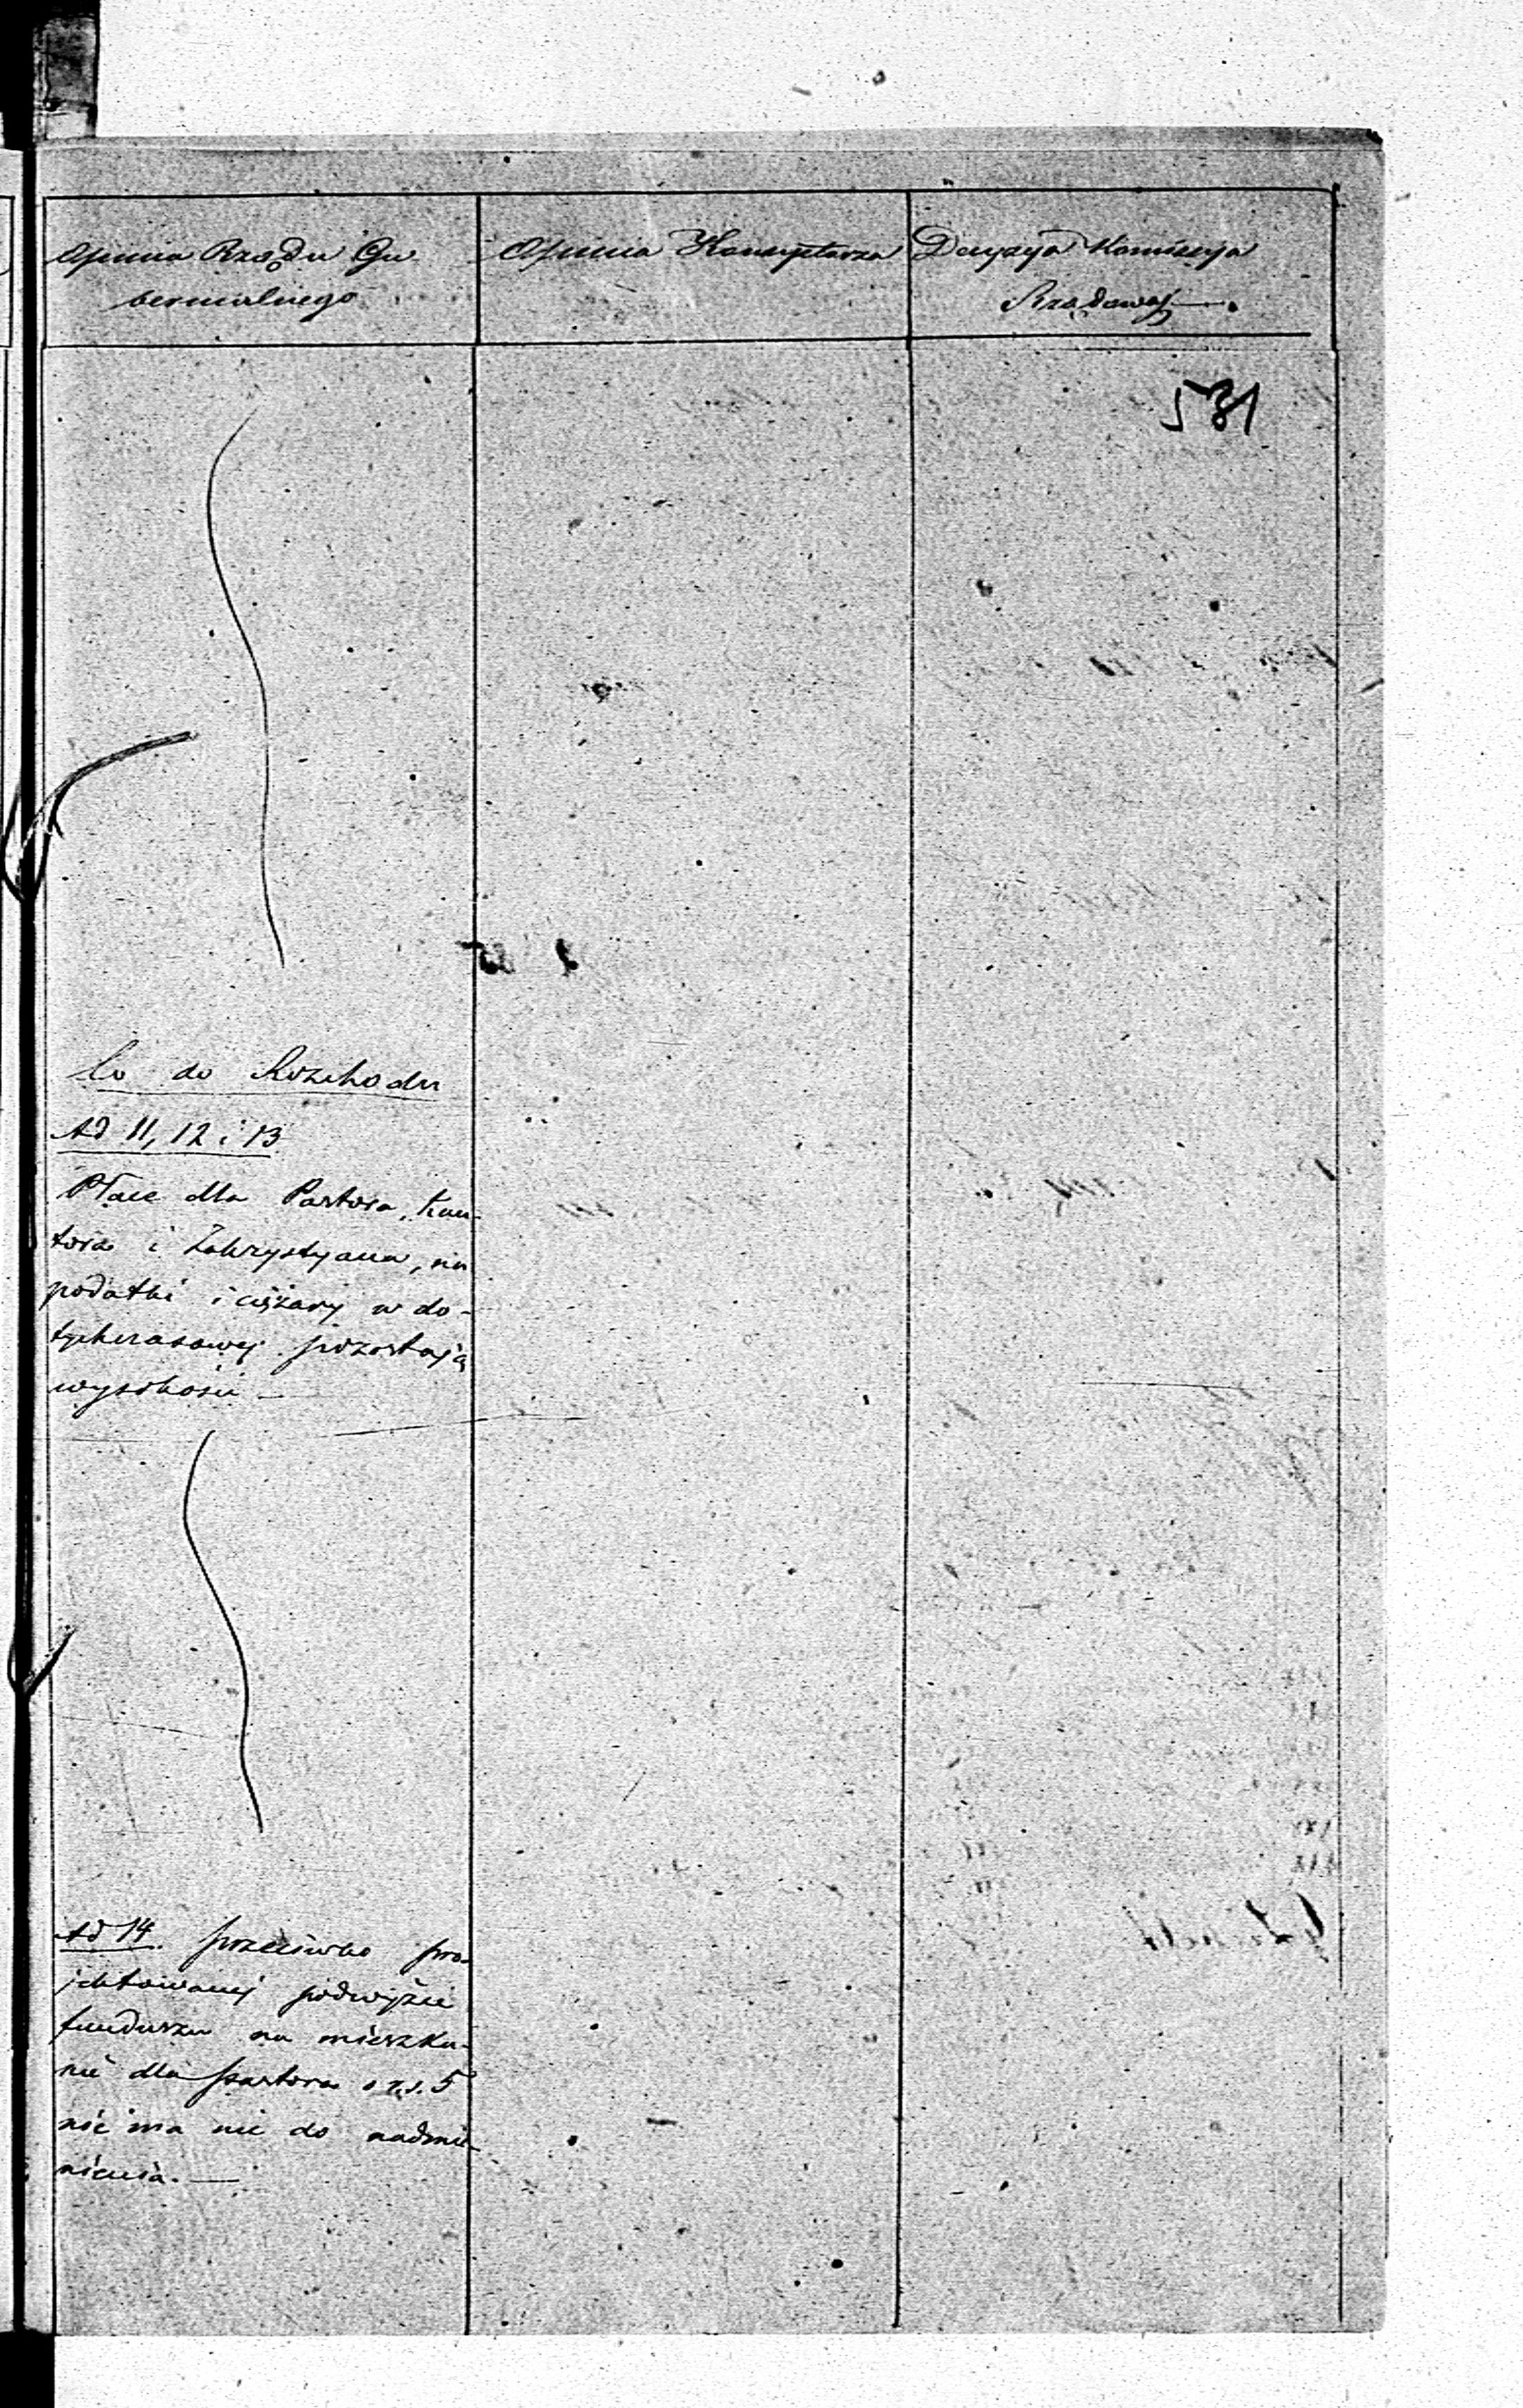 Opinia Rządu Gu
bernialnego
Opinia Konsystorza
Decyzya Komissyi
Rządowej
531
Co do Rozchodu
Ad 11, 12 i 13
Płace dla Pastora, Kan-
tora i Zakrystyana, na
podatki i ciężary w do-
tychczasowej pozostają
wysokości —
Ad 14. przeciwko pro-
jektowanej podwyżce
funduszu na mieszka-
nie dla pastora o r.s. 5
nie ma nic do nadmie-
nienia. —